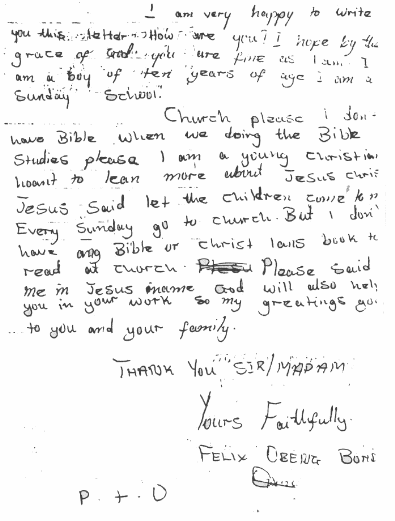 I am very happy to write
you this letter. How are you? I hope by the
grace of God you are fine as I am. I
am a boy of ten years of age I am a
Sunday School.
Church please I don-
have Bible when we doing the Bible
Studies please I am a young christian
want to lean more about Jesus chris
Jesus Said let the children come to m
Every Sunday go to church. But I don't
have any Bible or christ lans book to
read at church. Please Said
me in Jesus iname God will also help
you in your work so my greetings go
to you and your family.
THANK YOU SIR/MADAM
Yours Faithfully
FELIX OBENG
P. t. O